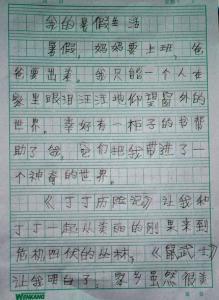 我的暑假生活
暑假，妈妈要上班，爸
爸要出差。我只能一个人在
家里眼泪汪汪地仰望窗外的
世界。幸好有一柜子的书帮
助了我，它们把我带进了一
个神奇的世界。
《丁丁历险记》让我和
丁丁一起从美丽的刚果来到
危机四伏的丛林，《鼠武士》
让我明白了，家乡虽然很美